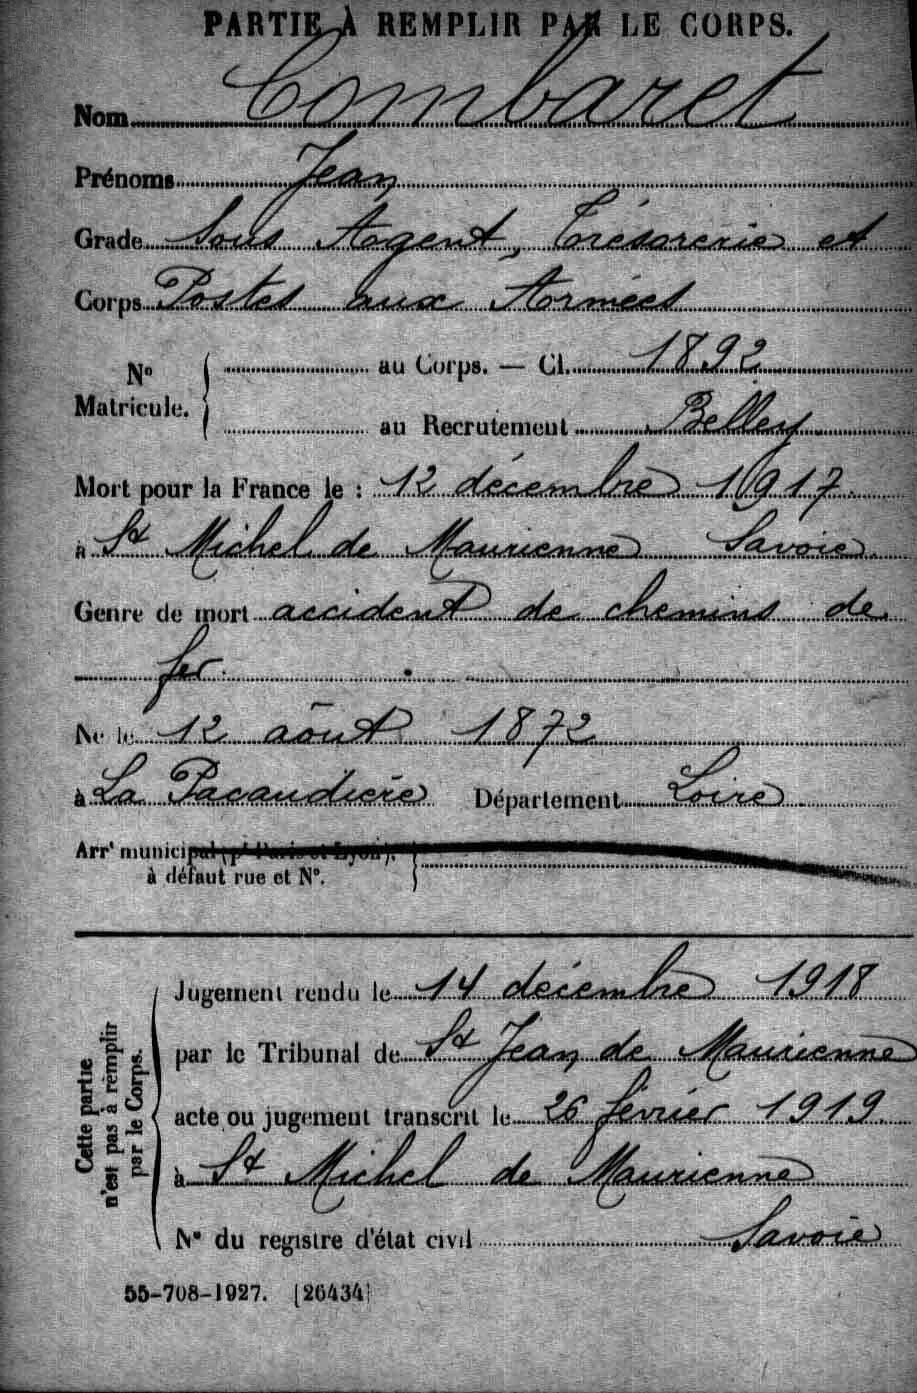 PARTIE À REMPLIR PAR LE CORPS.
Nom Combaret
Prénoms Jean
Grade Sous Agent, Trésorerie et
Corps Postes aux Armées
N° Matricule. au Corps. — Cl. 1892
au Recrutement Belley
Mort pour la France le : 12 décembre 1917
à St Michel de Maurienne Savoie
Genre de mort accident de chemins de
fer
Né le 12 août 1872
à La Pacaudière Département Loire
Arrt municipal (pr Paris et Lyon).
à défaut rue et N°.
Cette partie n'est pas à remplir par le Corps.
Jugement rendu le 14 décembre 1918
par le Tribunal de St Jean de Maurienne
acte ou jugement transcrit le 26 février 1919
à St Michel de Maurienne
N° du registre d'état civil Savoie
55-708-1927. [26434]